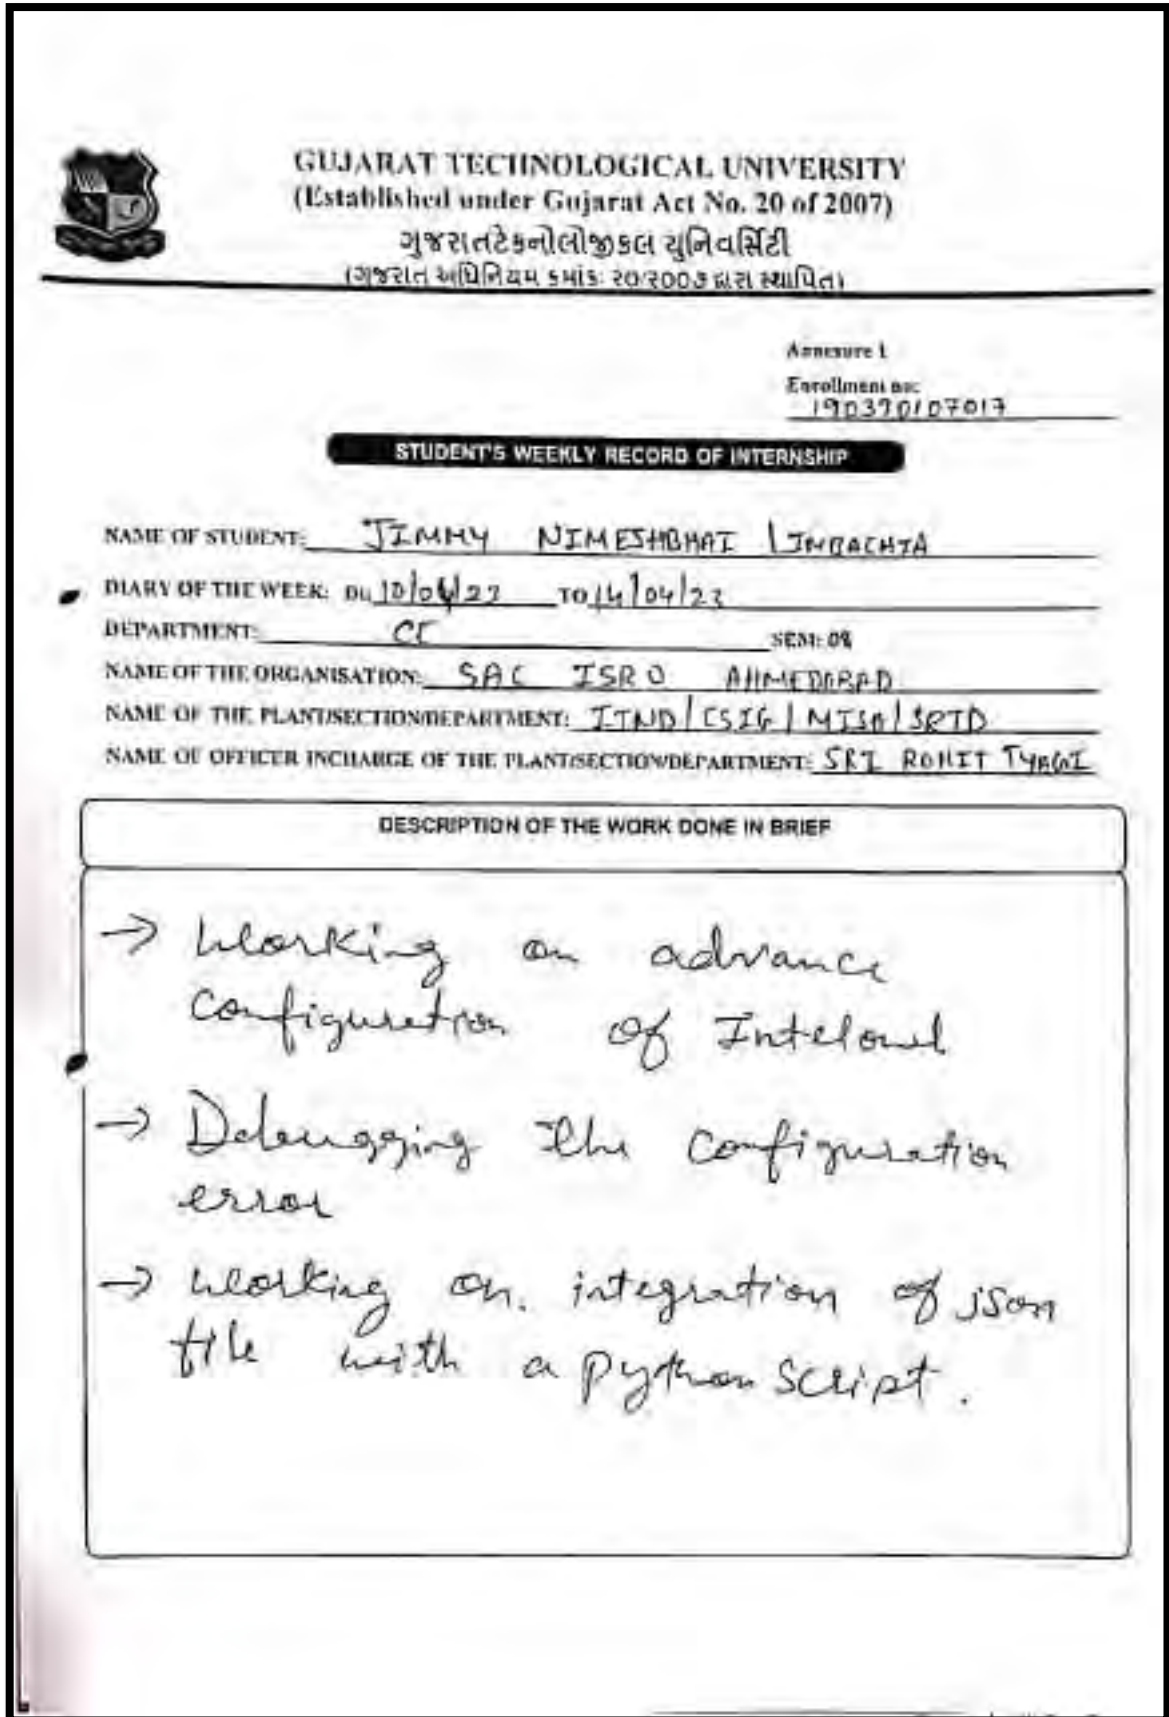 GUJARAT TECHNOLOGICAL UNIVERSITY
(Established under Gujarat Act No. 20 of 2007)
ગુજરાતટેકનોલોજીકલ યુનિવર્સિટી
(ગુજરાત અધિનિયમ ક્રમાંક: ૨૦/૨૦૦૭ દ્વારા સ્થાપિત)
Annexure 1
Enrollment no:
190390107017
STUDENT'S WEEKLY RECORD OF INTERNSHIP
NAME OF STUDENT: JIMMY NIMESHBHAI LIMBACHIA
DIARY OF THE WEEK: 10/04/23 TO 14/04/23
DEPARTMENT: CE SEM: 08
NAME OF THE ORGANISATION: SAC ISRO AHMEDABAD
NAME OF THE PLANT/SECTION/DEPARTMENT: ITND/CSIG/MISA/SRTD
NAME OF OFFICER INCHARGE OF THE PLANT/SECTION/DEPARTMENT: SRI ROHIT TYAGI
DESCRIPTION OF THE WORK DONE IN BRIEF
→ Working on advance
configuration of Intelowl
→ Debugging the configuration
error
→ Working on integration of json
file with a python script.